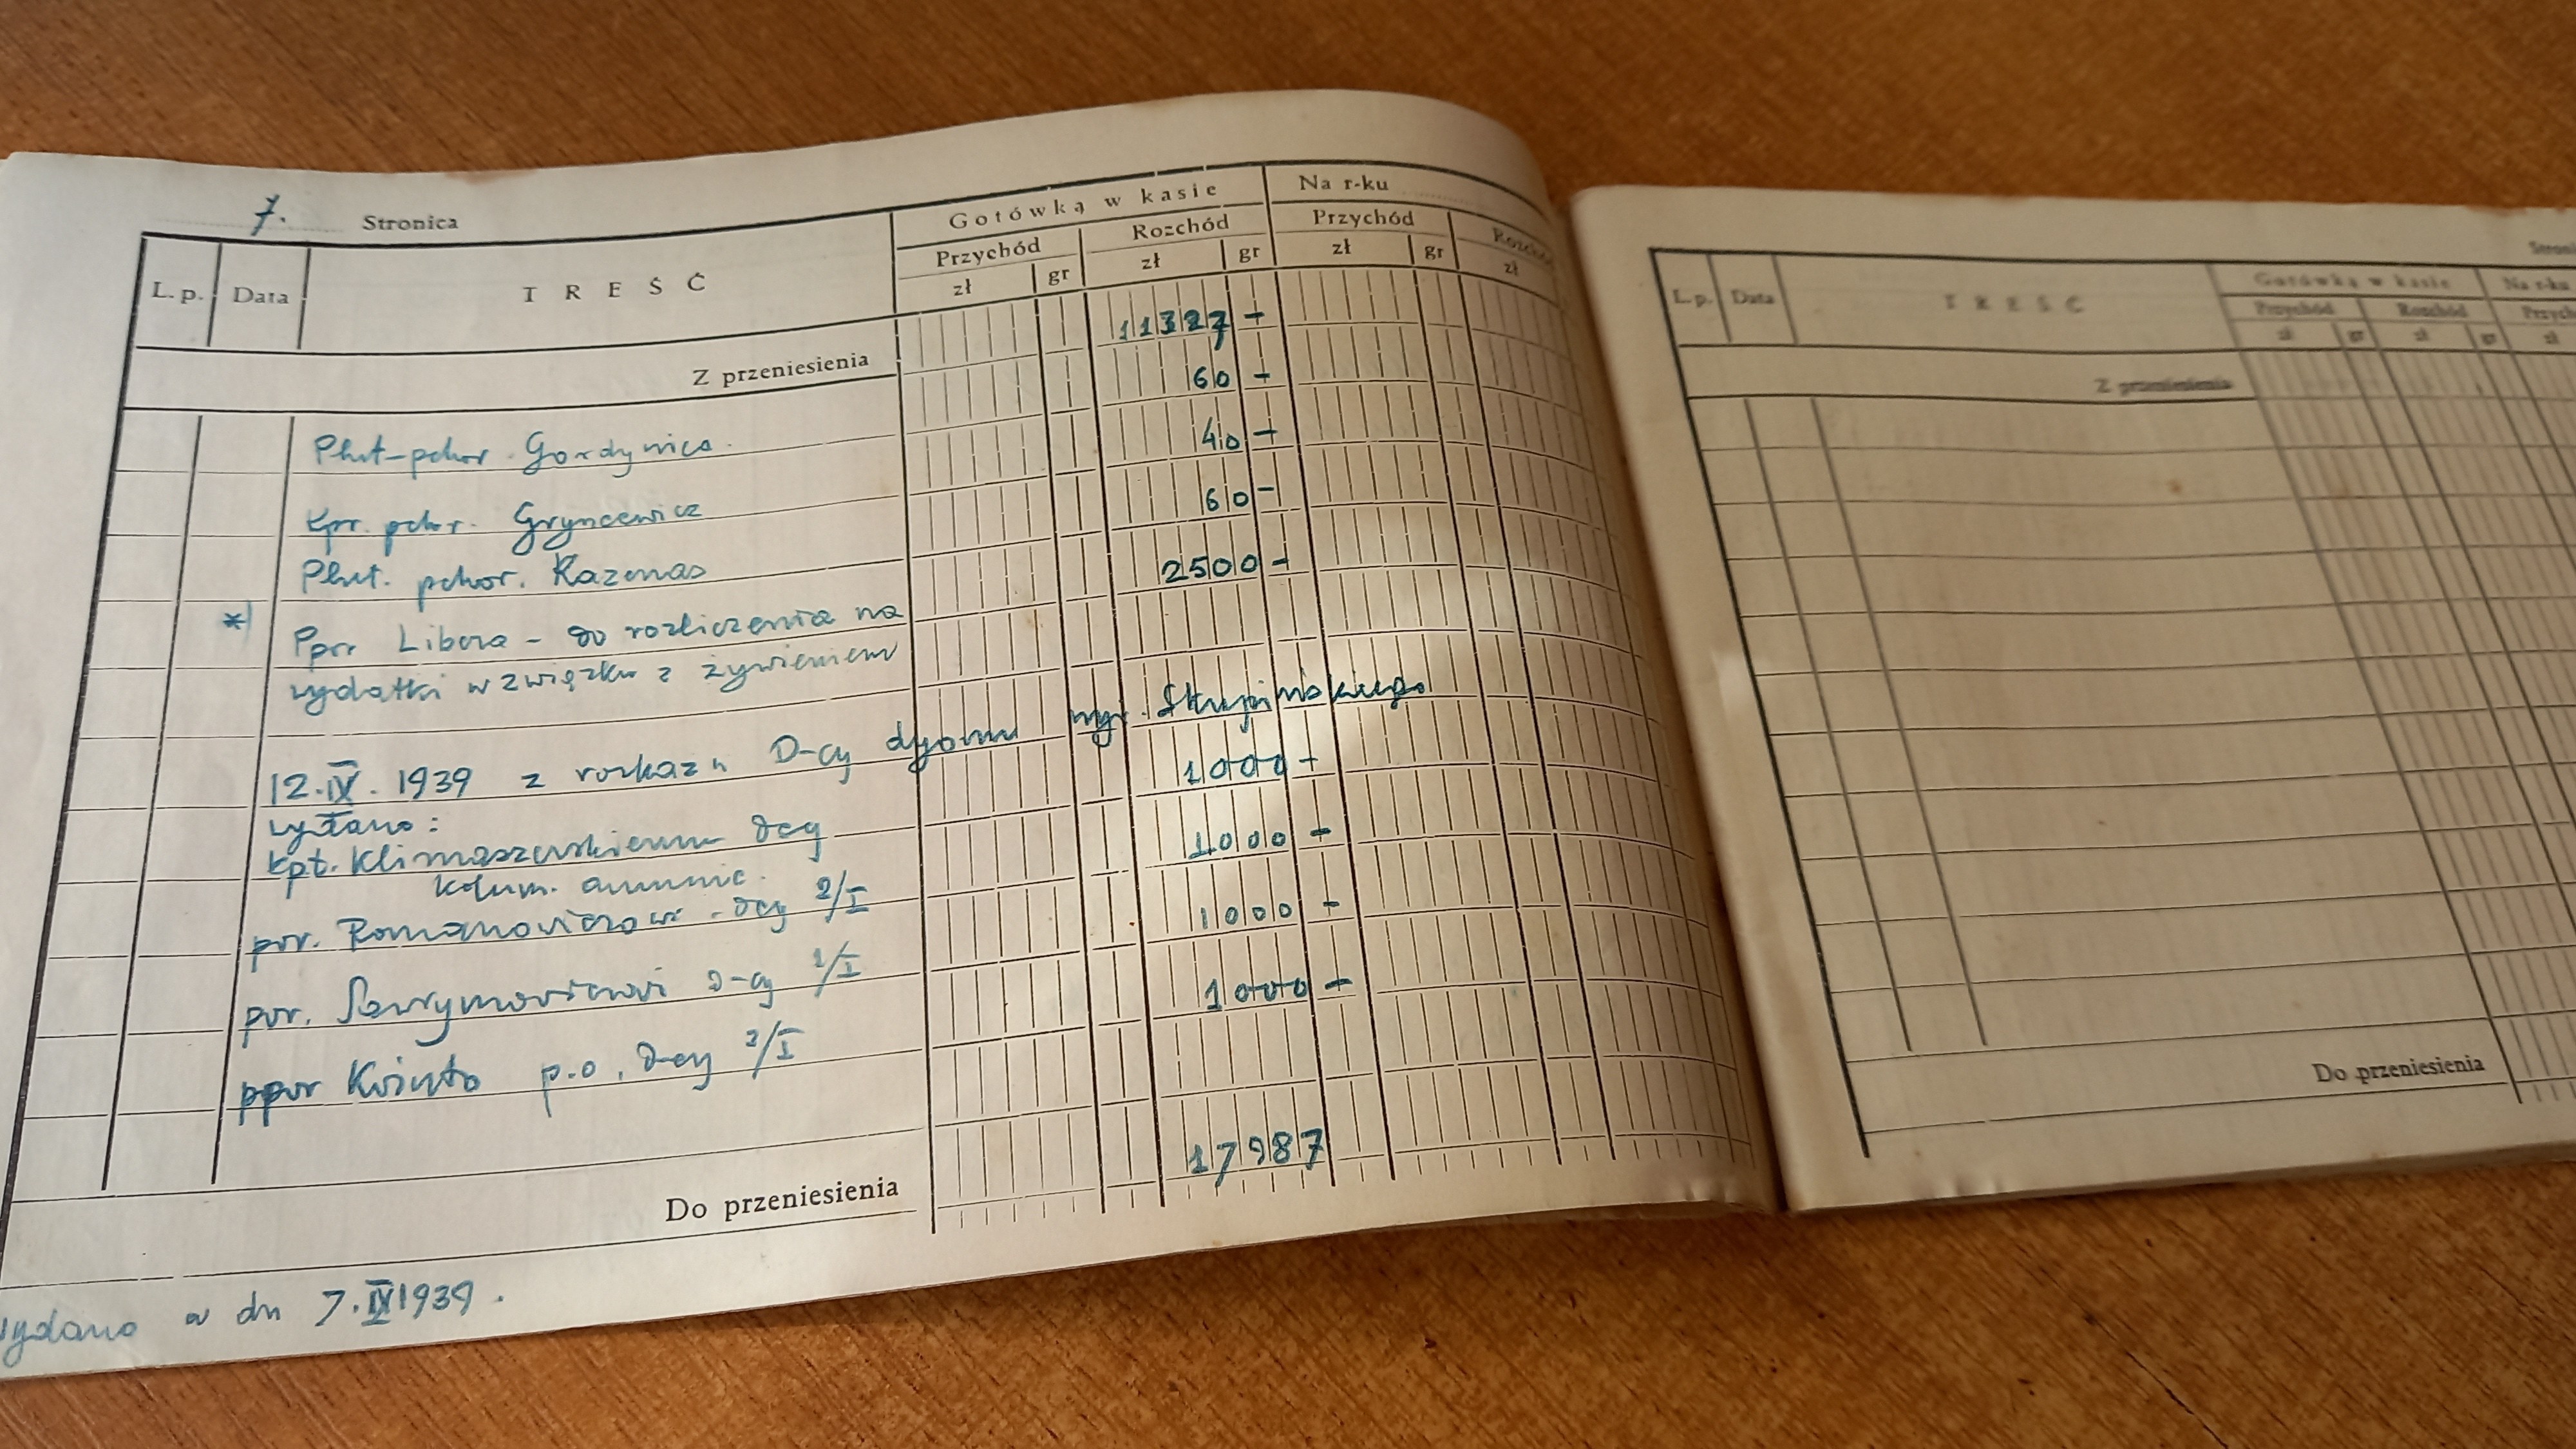 7. Stronica
L. p. Data TREŚĆ Gotówką w kasie Na r-ku
Przychód Rozchód Przychód Rozchód
zł gr zł gr zł gr zł
Z przeniesienia 11327 -
Plut-pchor. Gordynica. 60 -
Kpr. pchor. Gryncewicz 40 -
Plut. pchor. Kazenas 60 -
*) Ppor Libera - do rozliczenia na 2500 -
wydatki w związku z żywieniem
12.IX. 1939 z rozkazu D-cy dyonu mjr. Skupińskiego
wydano:
kpt. Klimaszewskiemu dcy 1000 -
kolum. amunic.
por. Romanowiczowi - dcy 2/I 1000 -
por. Sawrymowiczowi D-cy 1/I 1000 -
ppor Kwinto p.o. D-cy 3/I 1000 -
Do przeniesienia 17987
wydano w dn 7.IX 1939.
L. p. Data TREŚĆ Gotówką w kasie Na r-ku
Przychód Rozchód
zł gr zł gr zł
Z przeniesienia
Do przeniesienia